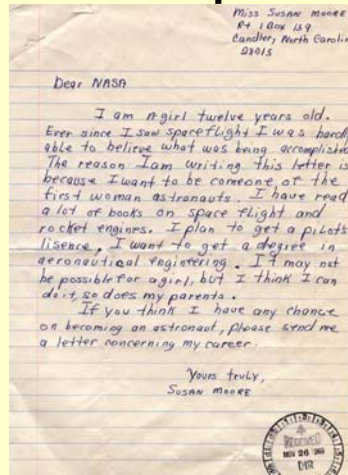 Miss Susan Moore
Rt 1 Box 159
Candler, North Carolin
28715
Dear NASA
I am a girl twelve years old.
Ever since I saw spaceflight I was hardl
able to believe what was being accomplished
The reason I am writing this letter is
because I want to be comeone of the
first woman astronauts. I have read
a lot of books on space flight and
rocket engines. I plan to get a pilots
lisence. I want to get a degree in
aeronautical engineering. It may not
be possible for a girl, but I think I can
do it, so does my parents.
If you think I have any chance
on becoming an astronaut, please send me
a letter concerning my career.
Yours truly,
Susan Moore
RECEIVED
NOV 26